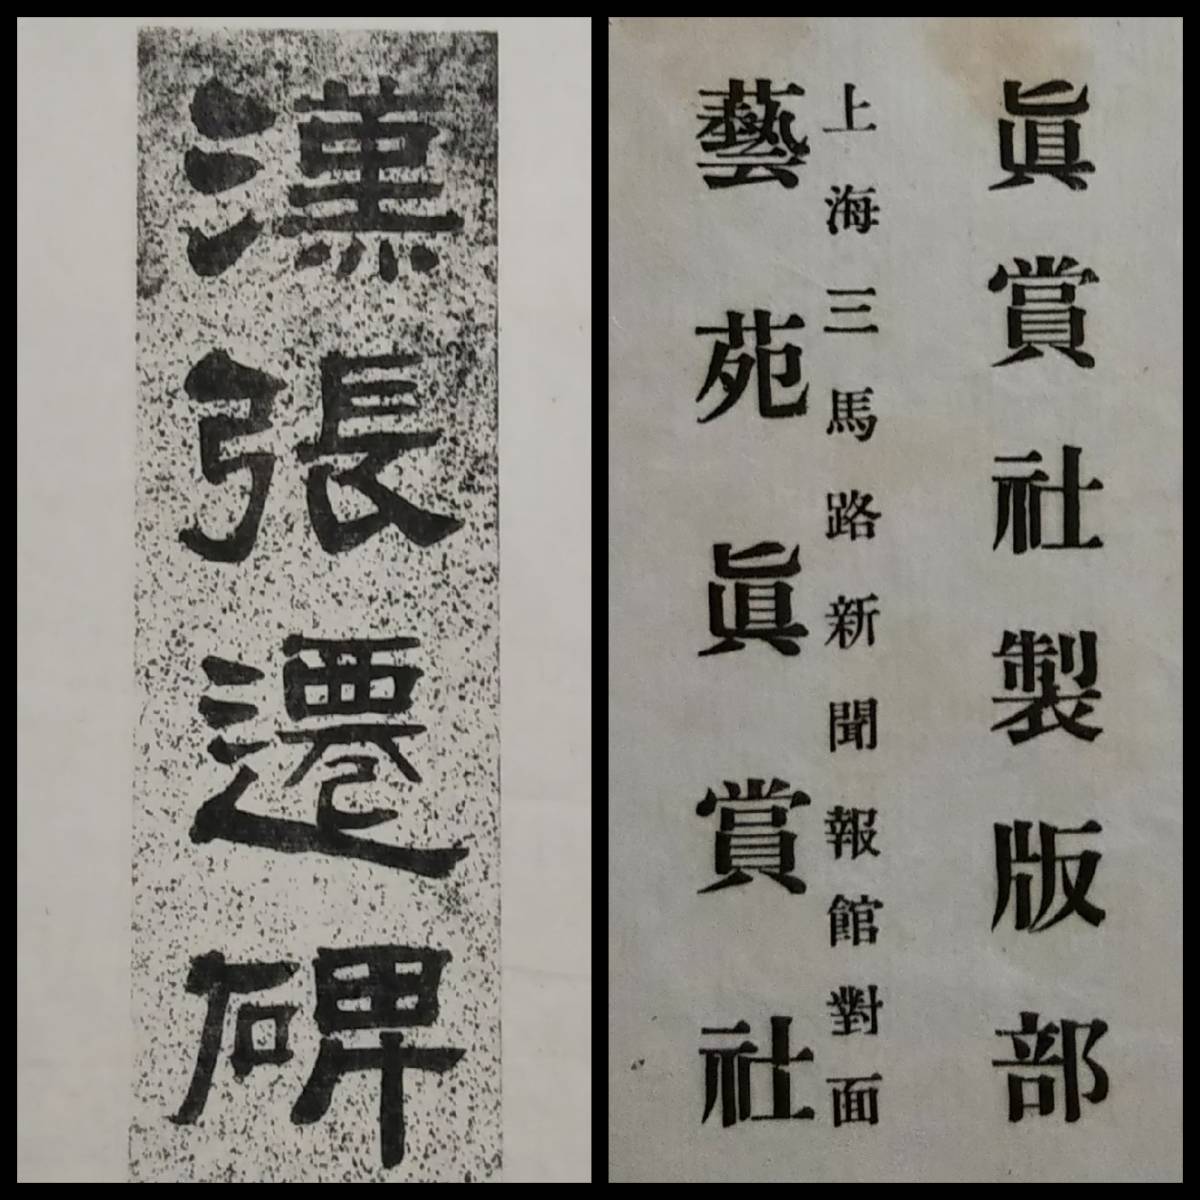 漢張遷碑
眞賞社製版部
上海三馬路新聞報館對面
藝苑眞賞社